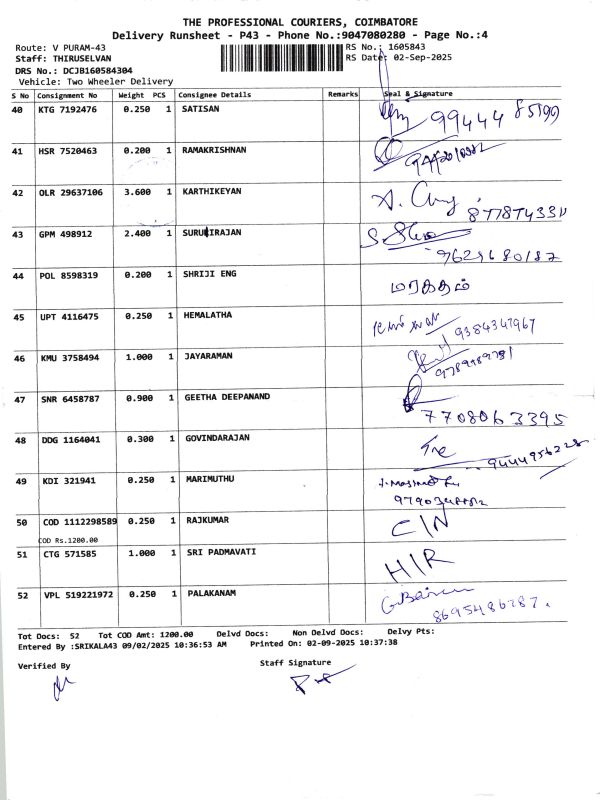 THE PROFESSIONAL COURIERS, COIMBATORE
Delivery Runsheet - P43 - Phone No.:9047080280 - Page No.:4
Route: V PURAM-43
RS No.: 1605843
Staff: THIRUSELVAN
RS Date: 02-Sep-2025
DRS No.: DCJB160584304
Vehicle: Two Wheeler Delivery
S No Consignment No Weight PCS Consignee Details Remarks Seal & Signature
40 KTG 7192476 0.250 1 SATISAN 99444 85199
41 HSR 7520463 0.200 1 RAMAKRISHNAN
42 OLR 29637106 3.600 1 KARTHIKEYAN
43 GPM 498912 2.400 1 SURULIRAJAN 9629680187
44 POL 8598319 0.200 1 SHRIJI ENG மரகதம்
45 UPT 4116475 0.250 1 HEMALATHA 9384347967
46 KMU 3758494 1.000 1 JAYARAMAN 9789989781
47 SNR 6458787 0.900 1 GEETHA DEEPANAND 7708063395
48 DDG 1164041 0.300 1 GOVINDARAJAN 9444956228
49 KDI 321941 0.250 1 MARIMUTHU
50 COD 1112298589 0.250 1 RAJKUMAR C/N
COD Rs.1200.00
51 CTG 571585 1.000 1 SRI PADMAVATI H/R
52 VPL 519221972 0.250 1 PALAKANAM 8695486287.
Tot Docs: 52 Tot COD Amt: 1200.00 Delvd Docs: Non Delvd Docs: Delvy Pts:
Entered By :SRIKALA43 09/02/2025 10:36:53 AM Printed On: 02-09-2025 10:37:38
Verified By
Staff Signature